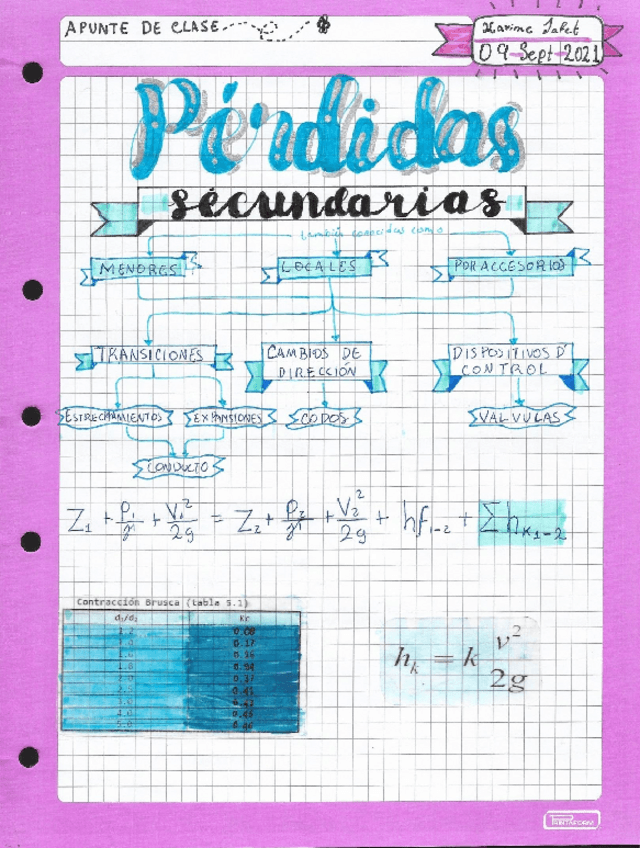 APUNTE DE CLASE
09-Sept-2021
Pérdidas
secundarias
también conocidas como
MENORES LOCALES POR ACCESORIOS
TRANSICIONES CAMBIOS DE DIRECCIÓN DISPOSITIVOS D' CONTROL
ESTRECHAMIENTOS EXPANSIONES CODOS VALVULAS
CONDUCTO
Z₁ + P₁/γ + V₁²/2g = Z₂ + P₂/γ + V₂²/2g + hf₁₋₂ + Σhk₁₋₂
Contracción Brusca (tabla 5.1)
d₁/d₂ Kc
1.2 0.08
0.17
1.8 0.34
2.0 0.37
0.41
0.45
5.0 0.46
hₖ = k v²/2g